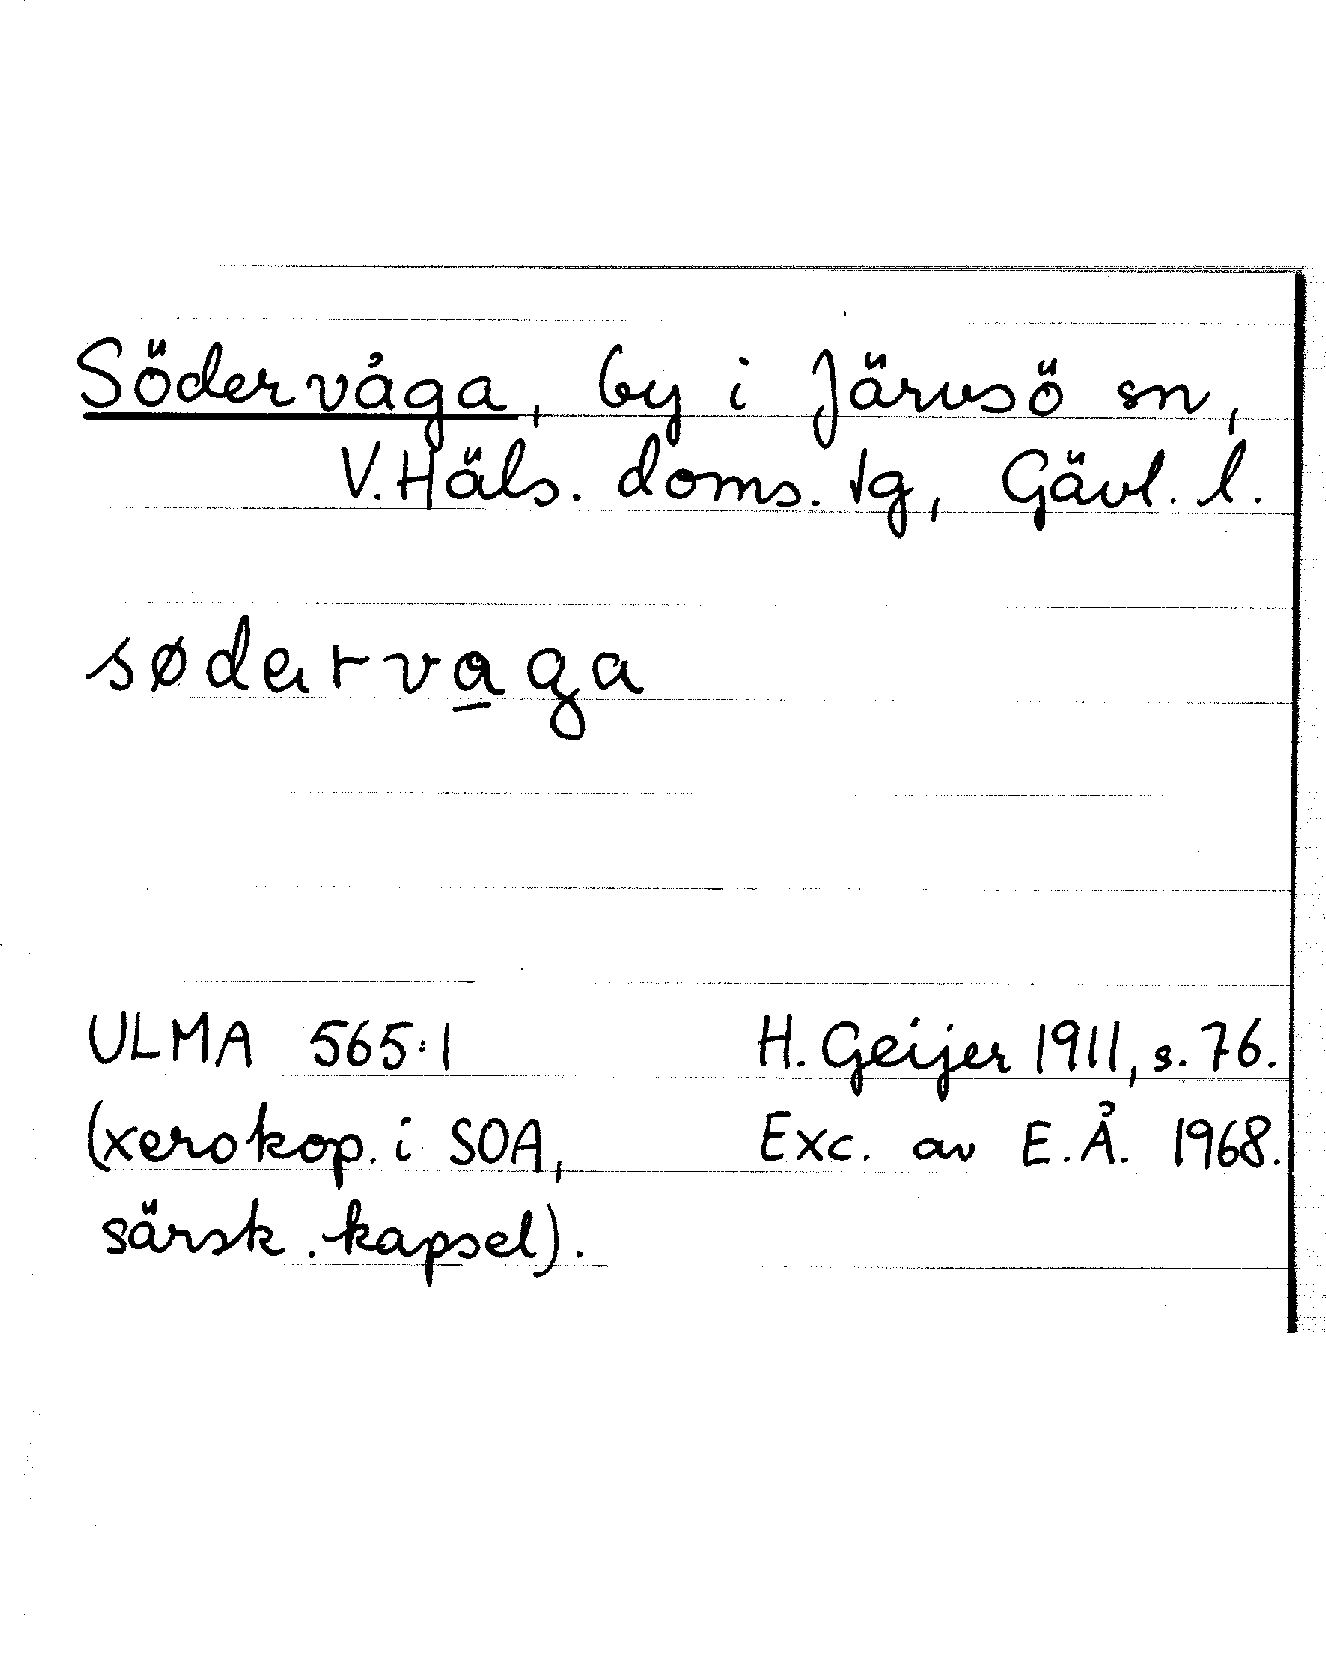 Södervåga, by i Järvsö sn,
V.Häls. doms. tg, Gävl. l.
sødərvaga
ULMA 565:1 H. Geijer 1911, s. 76.
(xerokop. i SOA, Exc. av E.Å. 1968.
särsk. kapsel).